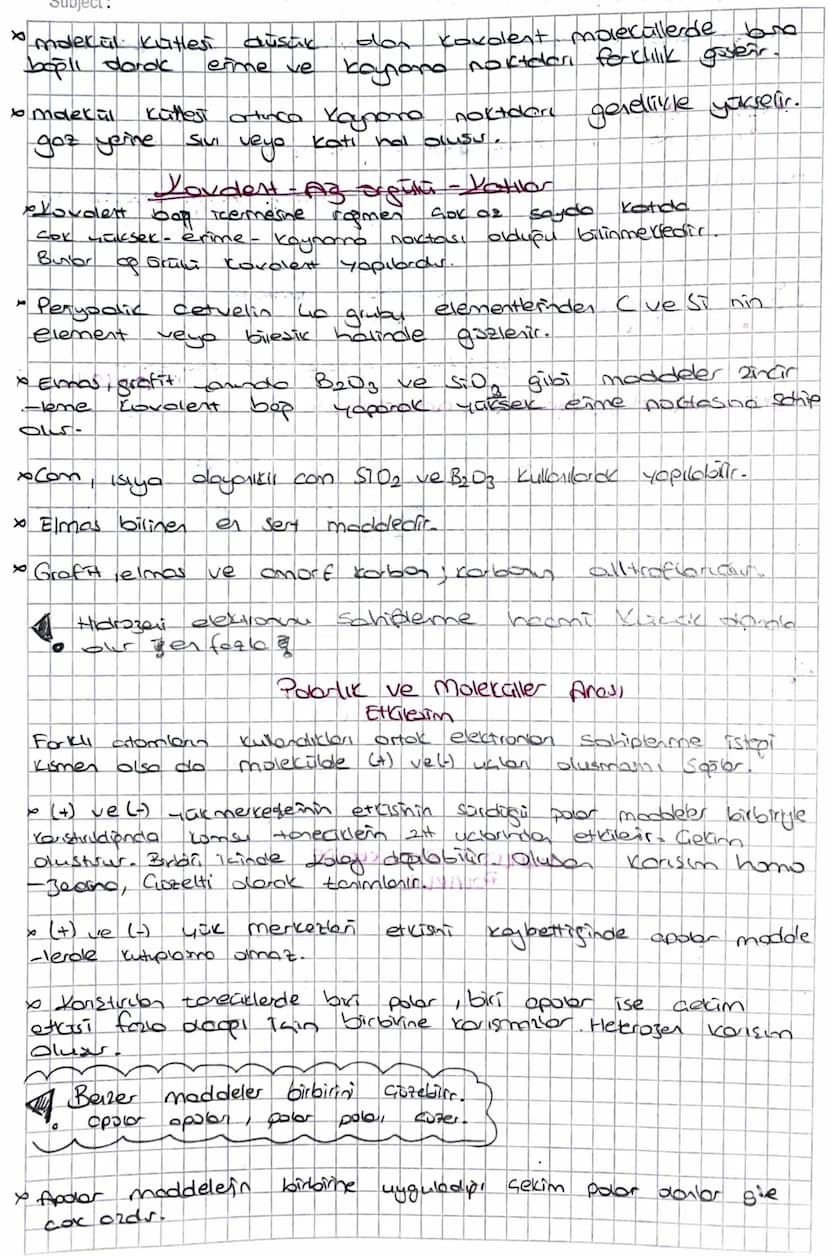 Subject:
* molekül kütlesi düşük olan kovalent moleküllerde buna
bağlı olarak erime ve kaynama noktaları farklılık gösterir.
* molekül kütlesi artınca kaynama noktaları genellikle yükselir.
gaz yerine sıvı veya katı hal oluşur.
Kovalent-Ağ örgülü-Katılar
* Kovalent bağ içermesine rağmen çok az sayıda katıda
çok yüksek-erime-kaynama noktası olduğu bilinmektedir.
Bunlar ağ örgülü kovalent yapılardır.
* Periyodik cetvelin 4a grubu elementlerinden C ve Si nin
element veya bileşik halinde gözlenir.
* Elmas, grafit B2O3 ve SiO2 gibi maddeler zincir
-leme kovalent bağ yaparak yüksek erime noktasına sahip
olur.
* Cam, ısıya dayanıklı cam SiO2 ve B2O3 kullanılarak yapılabilir.
* Elmas bilinen en sert maddedir.
* Grafit, elmas ve amorf karbon, karbonun alltroflarıdır.
Hidrojeni elektronu sahiplenme hacmi küçük
olur en fazla
Polarlık ve Moleküller Arası
Etkileşim
Farklı atomların kullandıkları ortak elektronları sahiplenme isteği
kısmen olsa da molekülde (+) ve (-) uçları oluşmasını sağlar.
* (+) ve (-) yük merkezinin etkisinin sürdüğü polar maddeler birbiriyle
karıştırıldığında komşu taneciklerin zıt uçlarından etkileşir. Çekim
oluşturur. Birbiri içinde kolay dağılabilir. Oluşan karışım homo
-jen, Çözelti olarak tanımlanır.
* (+) ve (-) yük merkezleri etkisini kaybettiğinde apolar madde
-lerde kutuplama olmaz.
* Karıştırılan taneciklerde biri polar, biri apolar ise çekim
etkisi farklı olduğu için birbirine karışmazlar. Heterojen karışım
oluşur.
Benzer maddeler birbirini çözebilir.
apolar apoları, polar poları çözer.
* Apolar maddelerin birbirine uyguladığı çekim polar olanlar göre
çok azdır.